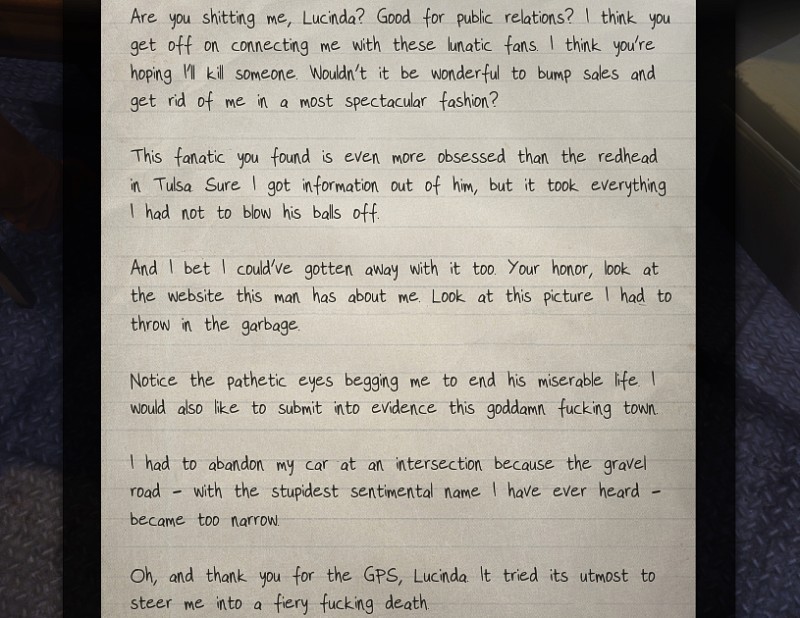 Are you shitting me, Lucinda? Good for public relations? I think you
get off on connecting me with these lunatic fans. I think you're
hoping I'll kill someone. Wouldn't it be wonderful to bump sales and
get rid of me in a most spectacular fashion?
This fanatic you found is even more obsessed than the redhead
in Tulsa Sure I got information out of him, but it took everything
I had not to blow his balls off.
And I bet I could've gotten away with it too. Your honor, look at
the website this man has about me. Look at this picture I had to
throw in the garbage.
Notice the pathetic eyes begging me to end his miserable life. I
would also like to submit into evidence this goddamn fucking town.
I had to abandon my car at an intersection because the gravel
road - with the stupidest sentimental name I have ever heard -
became too narrow.
Oh, and thank you for the GPS, Lucinda. It tried its utmost to
steer me into a fiery fucking death.